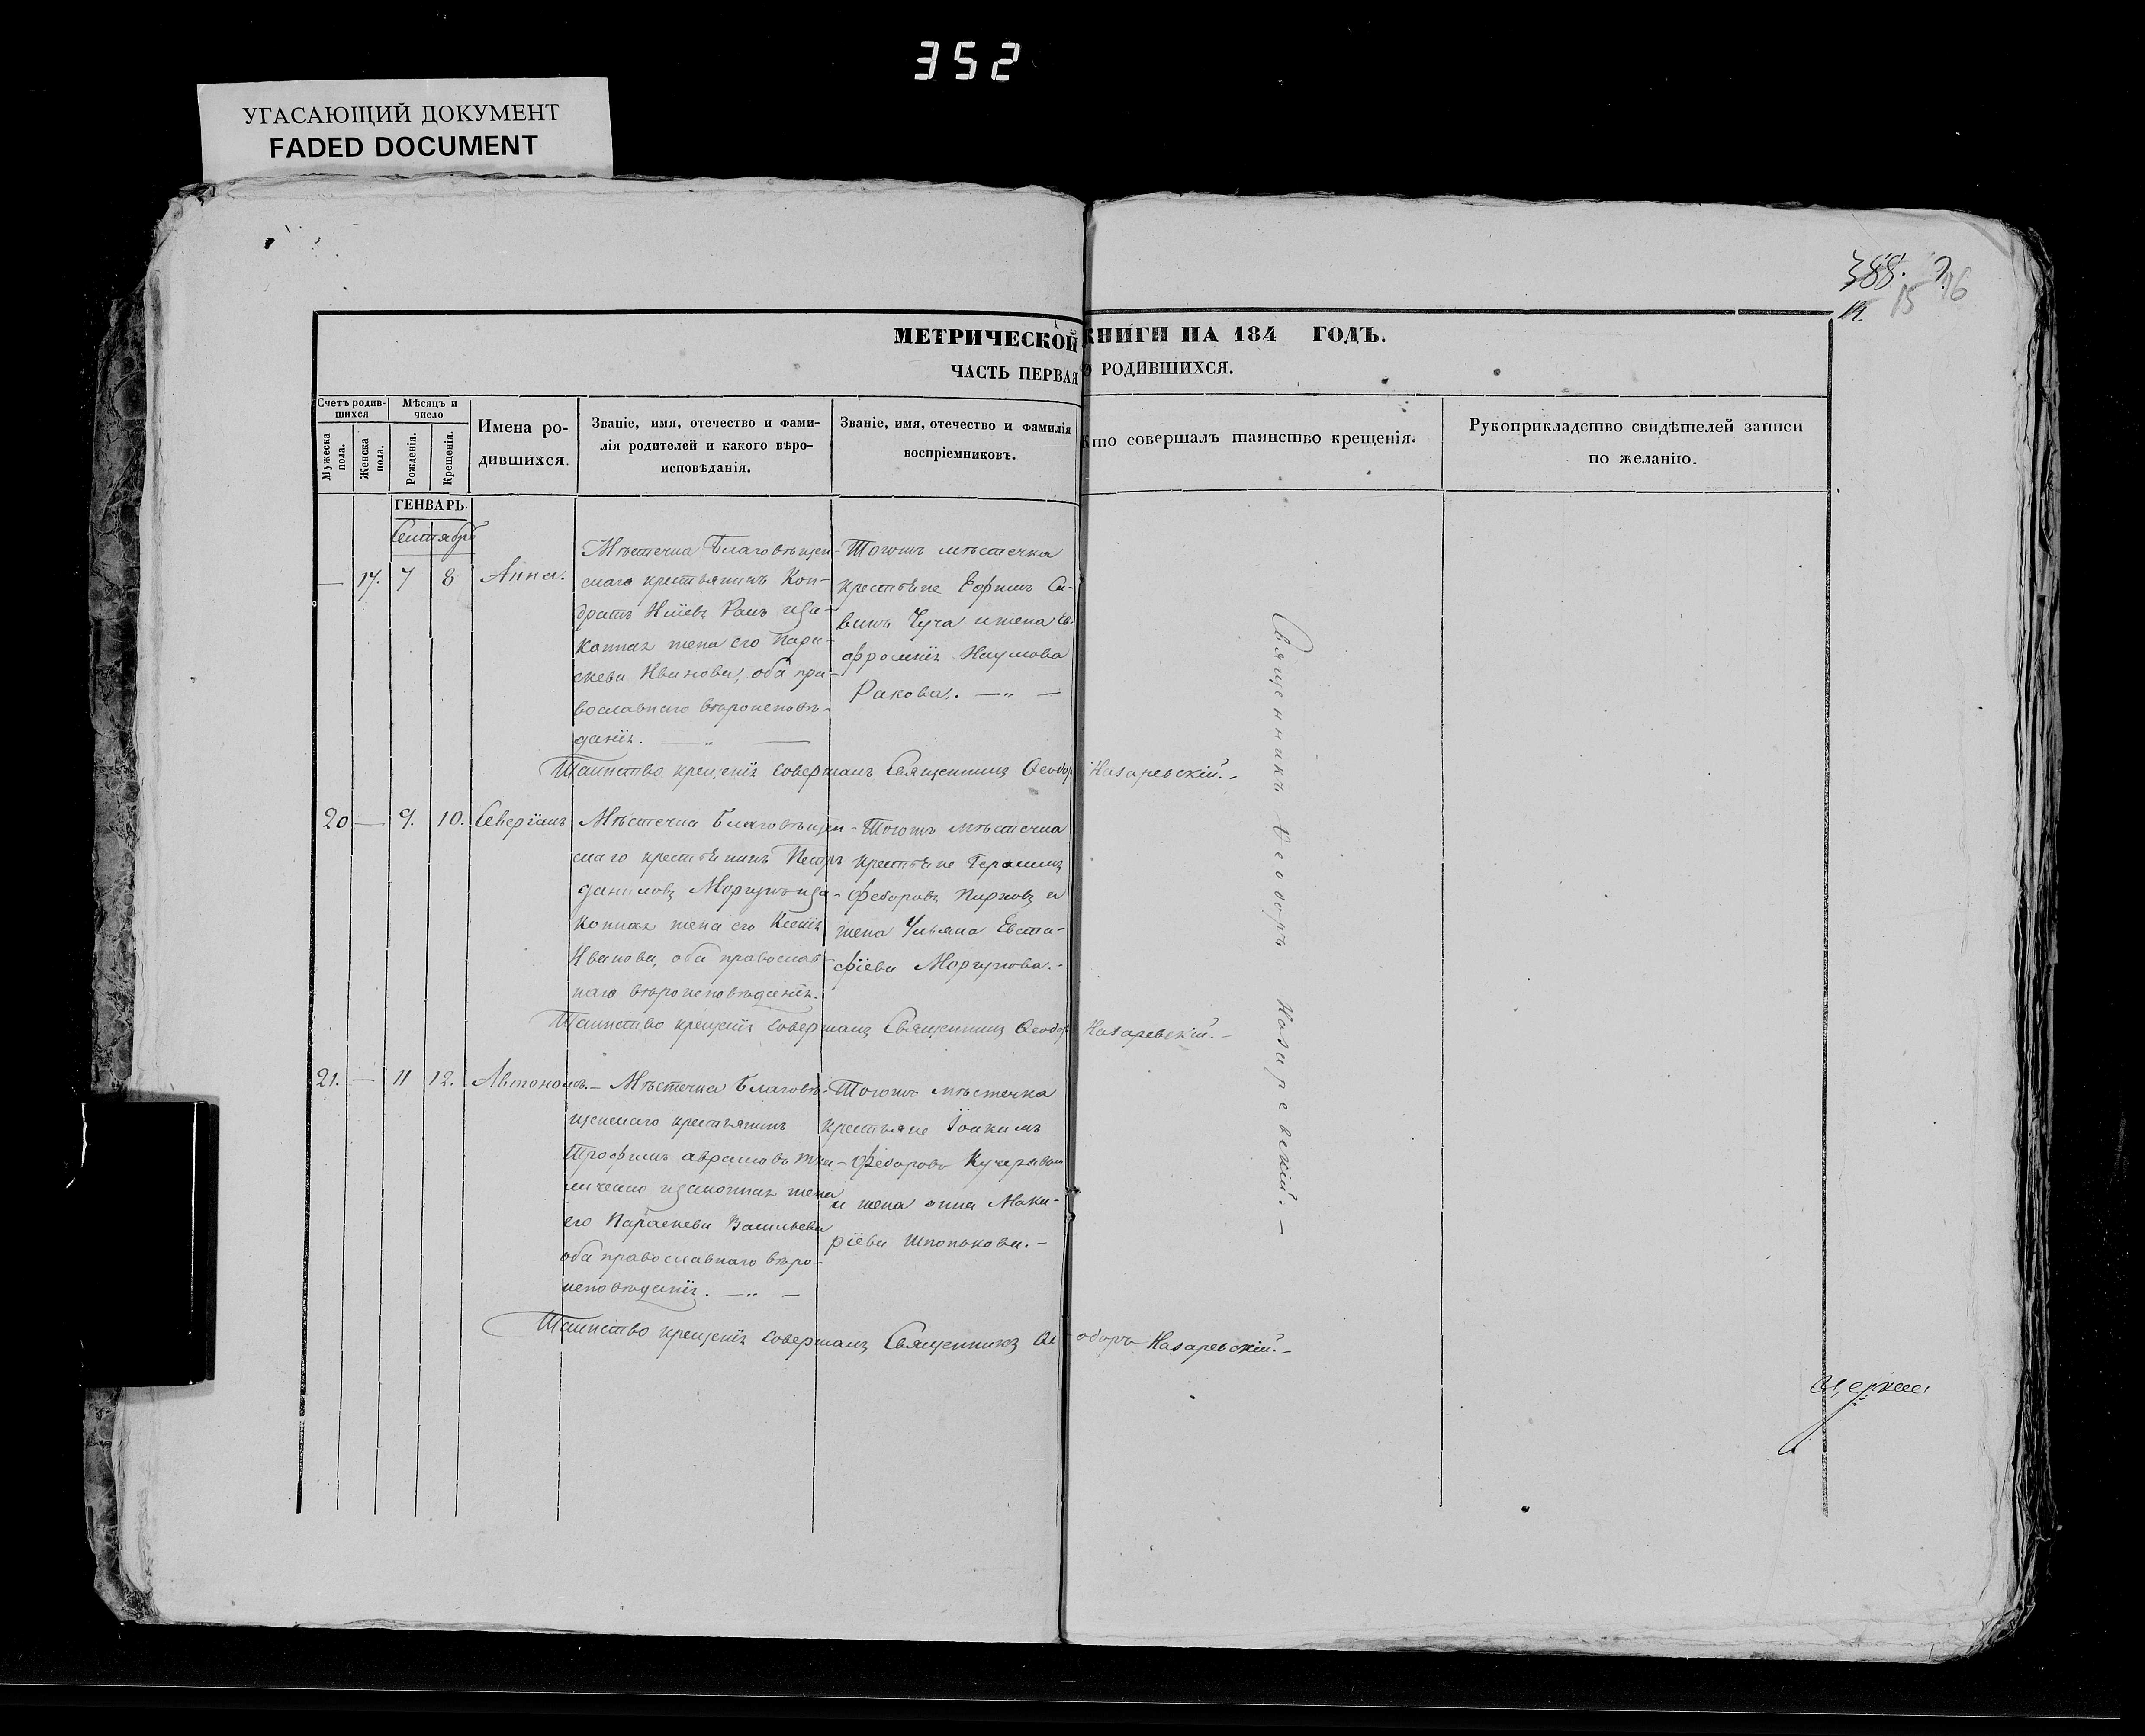 352
УГАСАЮЩИЙ ДОКУМЕНТ
FADED DOCUMENT
388.
14. 15 16
МЕТРИЧЕСКОЙ КНИГИ НА 184 ГОДЪ.
ЧАСТЬ ПЕРВАЯ О РОДИВШИХСЯ.
Счетъ родив-
шихся
Мужеска пола.
Женска пола.
Мѣсяцъ и
число
Рожденія.
Крещенія.
Имена ро-
дившихся.
Званіе, имя, отечество и фами-
лія родителей и какого вѣро-
исповѣданія.
Званіе, имя, отечество и фамилія
воспріемниковъ.
Кто совершалъ таинство крещенія.
Рукоприкладство свидѣтелей записи
по желанію.
ГЕНВАРЬ
Сентябрь
— 17. 7 8 Анна.
Мѣстечка Благовѣщен-
скаго крестьянинъ Кон-
дратъ Ракъ и за-
конная жена его Пара-
скева Иванова, оба пра-
вославнаго вѣроисповѣ-
данія. — „ —
Тогожъ мѣстечка
крестьяне Ефимъ Са-
винъ Чуча и жена Ев-
фросинія Наумова
Ракова. — „ —
Таинство крещенія совершалъ Священникъ Ѳеодоръ Назаревскій. –
20 — 9. 10. Северіанъ
Мѣстечка Благовѣщен-
скаго крестьянинъ Петръ
Даниловъ Моргунъ и за-
конная жена его Ксенія
Иванова, оба православ-
наго вѣроисповѣданія.
Тогожъ мѣстечка
крестьяне Герасимъ
Федоровъ и
жена Ульяна Евста-
фіева Моргунова. –
Таинство крещенія совершалъ Священникъ Ѳеодоръ Назаревскій. –
21. — 11 12. Автономъ. –
Мѣстечка Благовѣ-
щенскаго крестьянинъ
Трофимъ Аврамовъ
и законная жена
его Параскева Васильева
оба православнаго вѣро-
исповѣданія. — „ —
Тогожъ мѣстечка
крестьяне Іоакимъ
Федоровъ
и жена Анна Мака-
ріева Шпонькова. –
Таинство крещенія совершалъ Священникъ Ѳеодоръ Назаревскій. –
Священникъ Ѳеодоръ Назаревскій. –